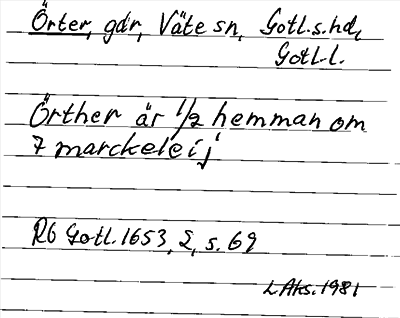 Örter, gdr, Väte sn, Gotl.s.hd,
Gotl.l.
Örther är 1/2 hemman om
7 marckeleij
Rb Gotl. 1653, 2, s. 69
L Aks. 1981